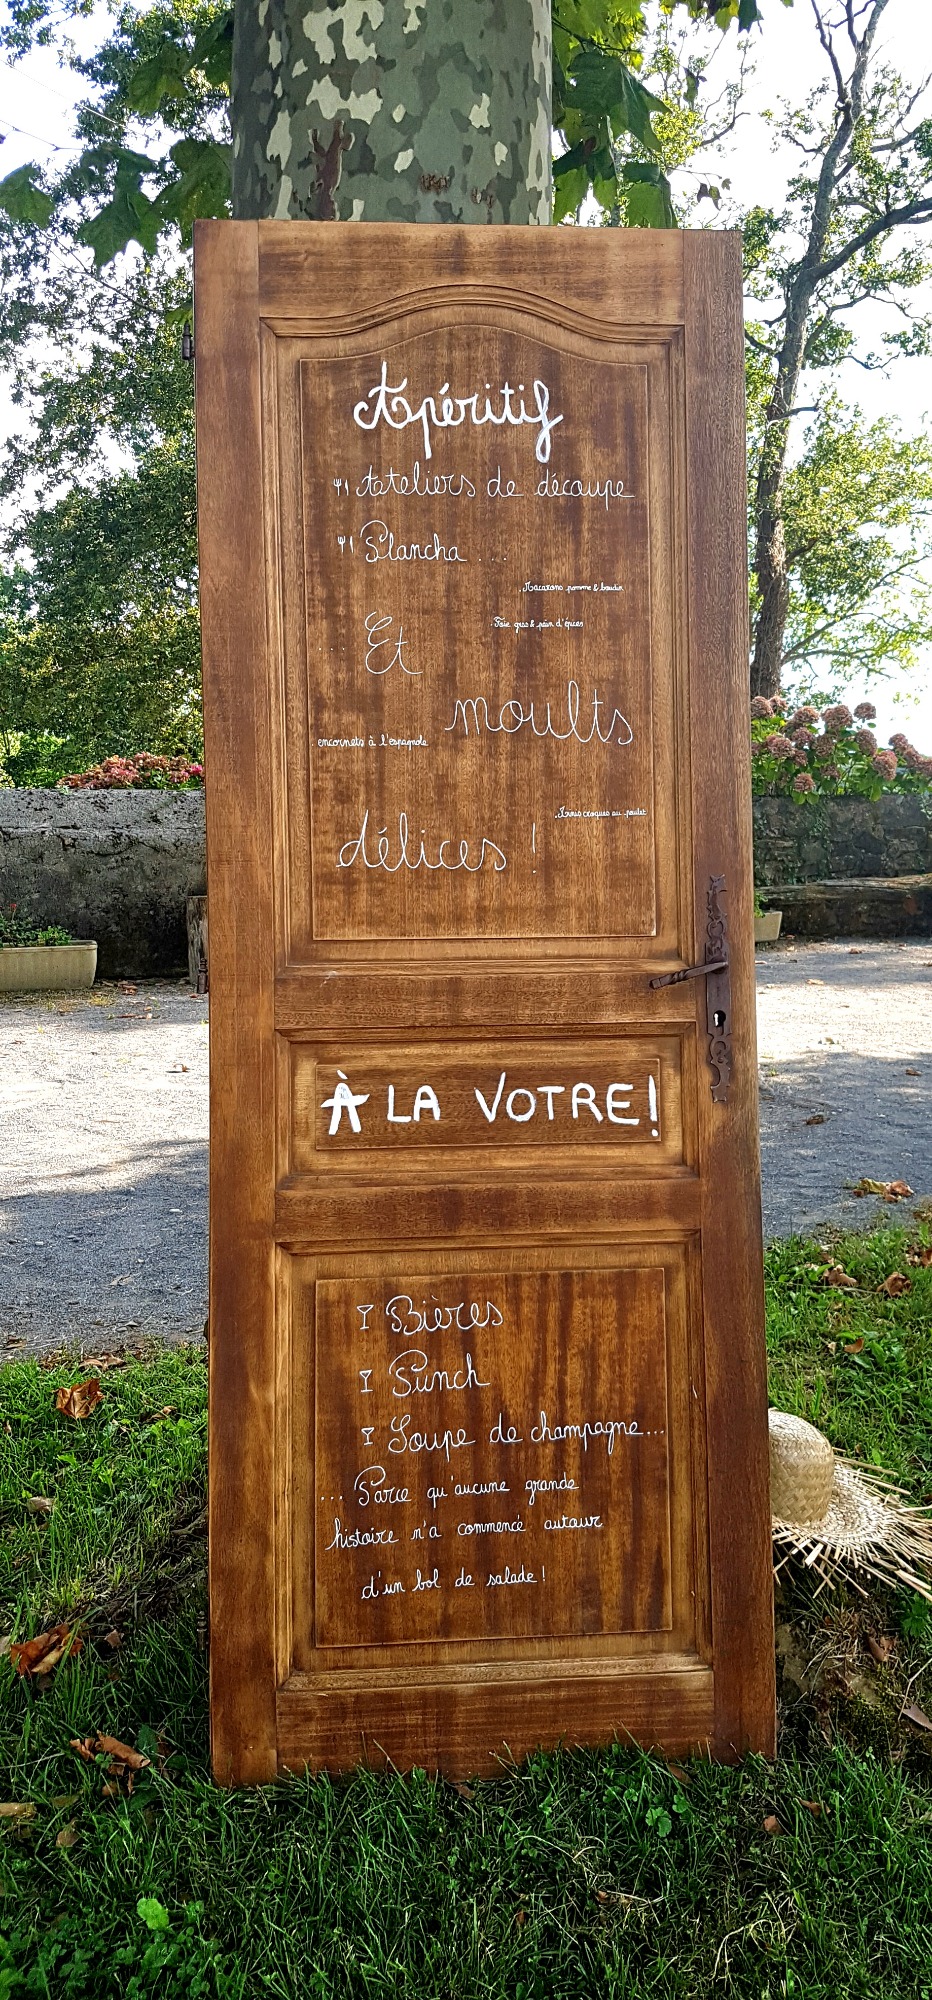 Apéritif
Ateliers de découpe
Plancha ...
. Macarons pomme & boudin
. Foie gras & pain d'épices
... Et
moults
. encornets à l'espagnole
. croques au poulet
délices !
À LA VOTRE!
Bières
Punch
Soupe de champagne...
... Parce qu'aucune grande
histoire n'a commencé autour
d'un bol de salade !